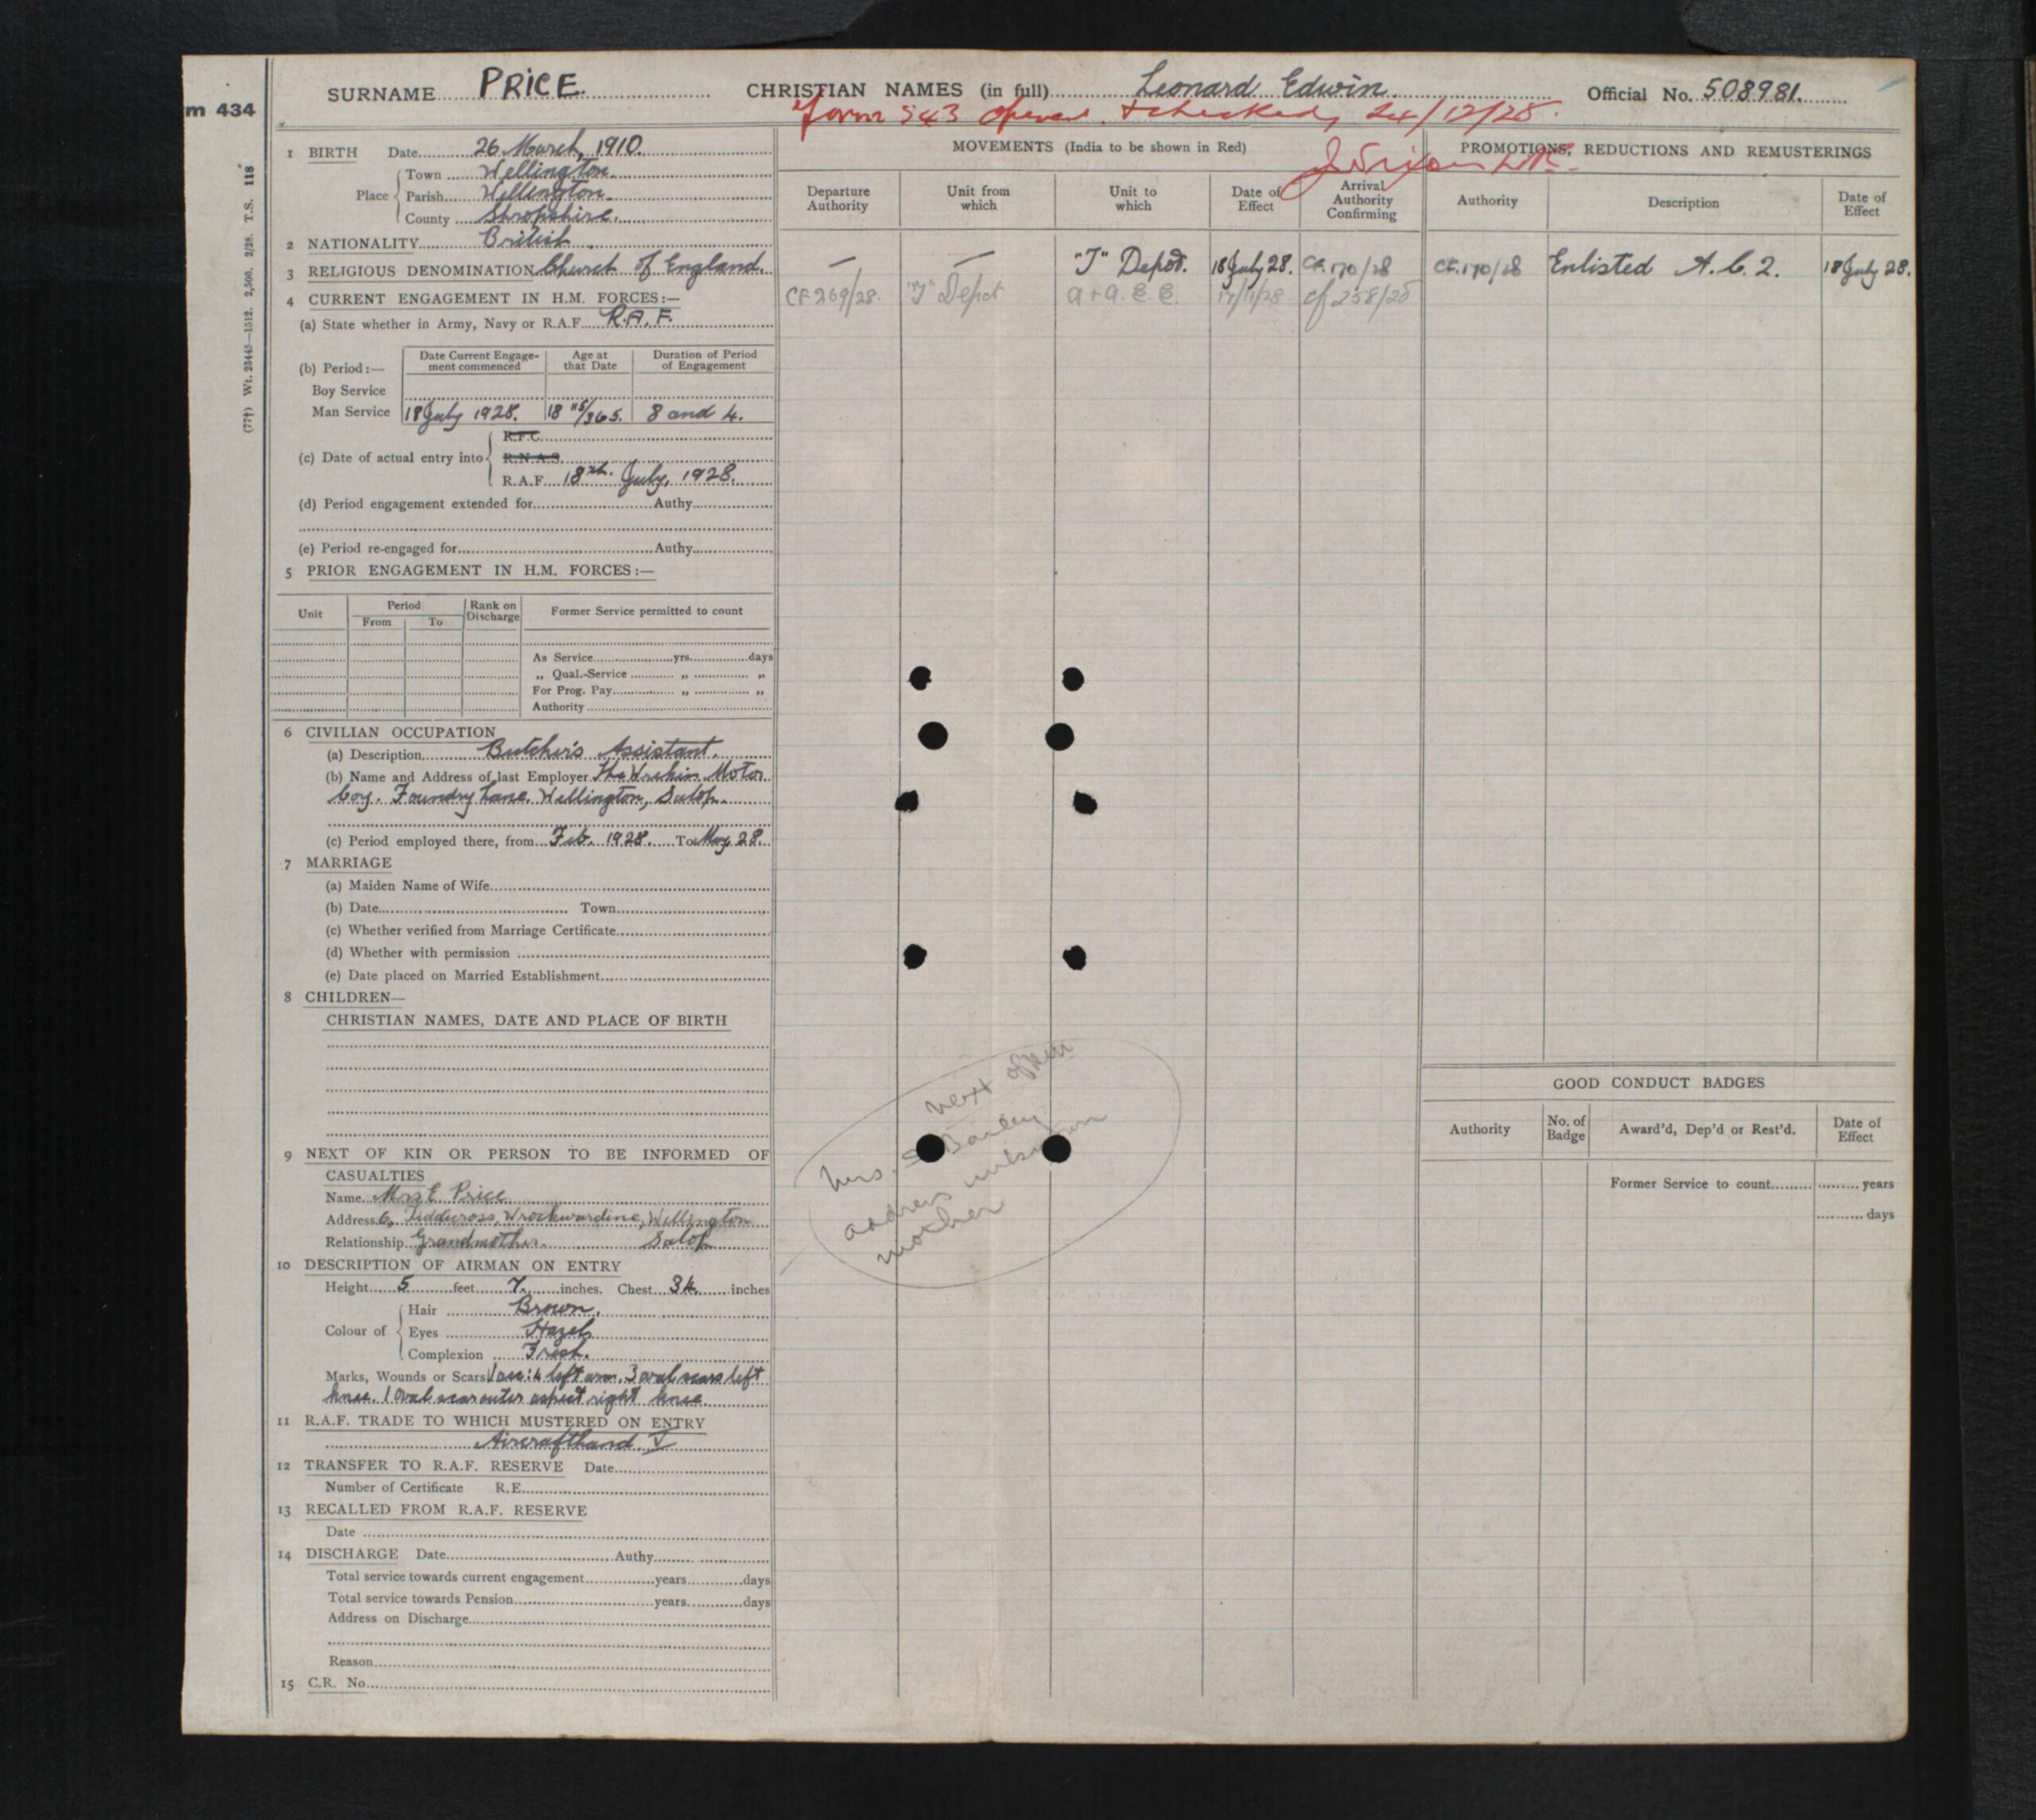 SURNAME PRICE. CHRISTIAN NAMES (in full) Leonard Edwin Official No. 508981.
m 434
Form 543 opened & checked, 24/12/28.
(77†) Wt. 23445—1512. 2,500. 2/28. T.S. 118
1 BIRTH Date 26 March, 1910.
Place Town Wellington.
Parish Wellington.
County Shropshire.
2 NATIONALITY British.
3 RELIGIOUS DENOMINATION Church of England.
4 CURRENT ENGAGEMENT IN H.M. FORCES:—
(a) State whether in Army, Navy or R.A.F. R.A.F.
(b) Period:— Date Current Engagement commenced Age at that Date Duration of Period of Engagement
Boy Service
Man Service 18 July 1928. 18 115/365. 8 and 4.
(c) Date of actual entry into R.F.C.
R.N.A.S.
R.A.F. 18th July, 1928.
(d) Period engagement extended for Authy.
(e) Period re-engaged for Authy.
5 PRIOR ENGAGEMENT IN H.M. FORCES:—
Unit Period Rank on Discharge Former Service permitted to count
From To
As Service yrs. days
„ Qual.-Service „ „
For Prog. Pay „ „
Authority
6 CIVILIAN OCCUPATION
(a) Description Butcher's Assistant.
(b) Name and Address of last Employer The Wrekin Motor
Coy. Foundry Lane, Wellington, Salop.
(c) Period employed there, from Feb. 1928. To May 28.
7 MARRIAGE
(a) Maiden Name of Wife
(b) Date Town
(c) Whether verified from Marriage Certificate
(d) Whether with permission
(e) Date placed on Married Establishment
8 CHILDREN—
CHRISTIAN NAMES, DATE AND PLACE OF BIRTH
9 NEXT OF KIN OR PERSON TO BE INFORMED OF
CASUALTIES
Name Mrs E Price
Address 6, Wrockwardine, Wellington
Relationship Grandmother. Salop
10 DESCRIPTION OF AIRMAN ON ENTRY
Height 5 feet 7 inches. Chest 34 inches
Colour of Hair Brown.
Eyes Hazel
Complexion Fresh.
Marks, Wounds or Scars Vacc: 4 left arm. 3 oval scars left
knee. 1 oval scar outer aspect right knee
11 R.A.F. TRADE TO WHICH MUSTERED ON ENTRY
Aircrafthand V
12 TRANSFER TO R.A.F. RESERVE Date
Number of Certificate R.E.
13 RECALLED FROM R.A.F. RESERVE
Date
14 DISCHARGE Date Authy.
Total service towards current engagement years days
Total service towards Pension years days
Address on Discharge
Reason
15 C.R. No.
MOVEMENTS (India to be shown in Red)
Departure Authority Unit from which Unit to which Date of Effect Arrival Authority Confirming
— — "J" Depot. 18 July 28. CF.170/28
CF 269/28. "J" Depot a + a.E.E. 17/11/28 cf 258/28
next of kin
Mrs. S
address unknown
mother
PROMOTIONS, REDUCTIONS AND REMUSTERINGS
Authority Description Date of Effect
CF.170/28 Enlisted A.C.2. 18 July 28.
GOOD CONDUCT BADGES
Authority No. of Badge Award'd, Dep'd or Rest'd. Date of Effect
Former Service to count years
days